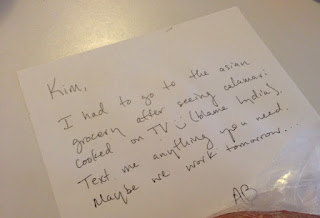 Kim,
I had to go to the asian
grocery after seeing calamari
cooked on TV :) (blame Lydia).
Text me anything you need.
Maybe we work tomorrow...
AB